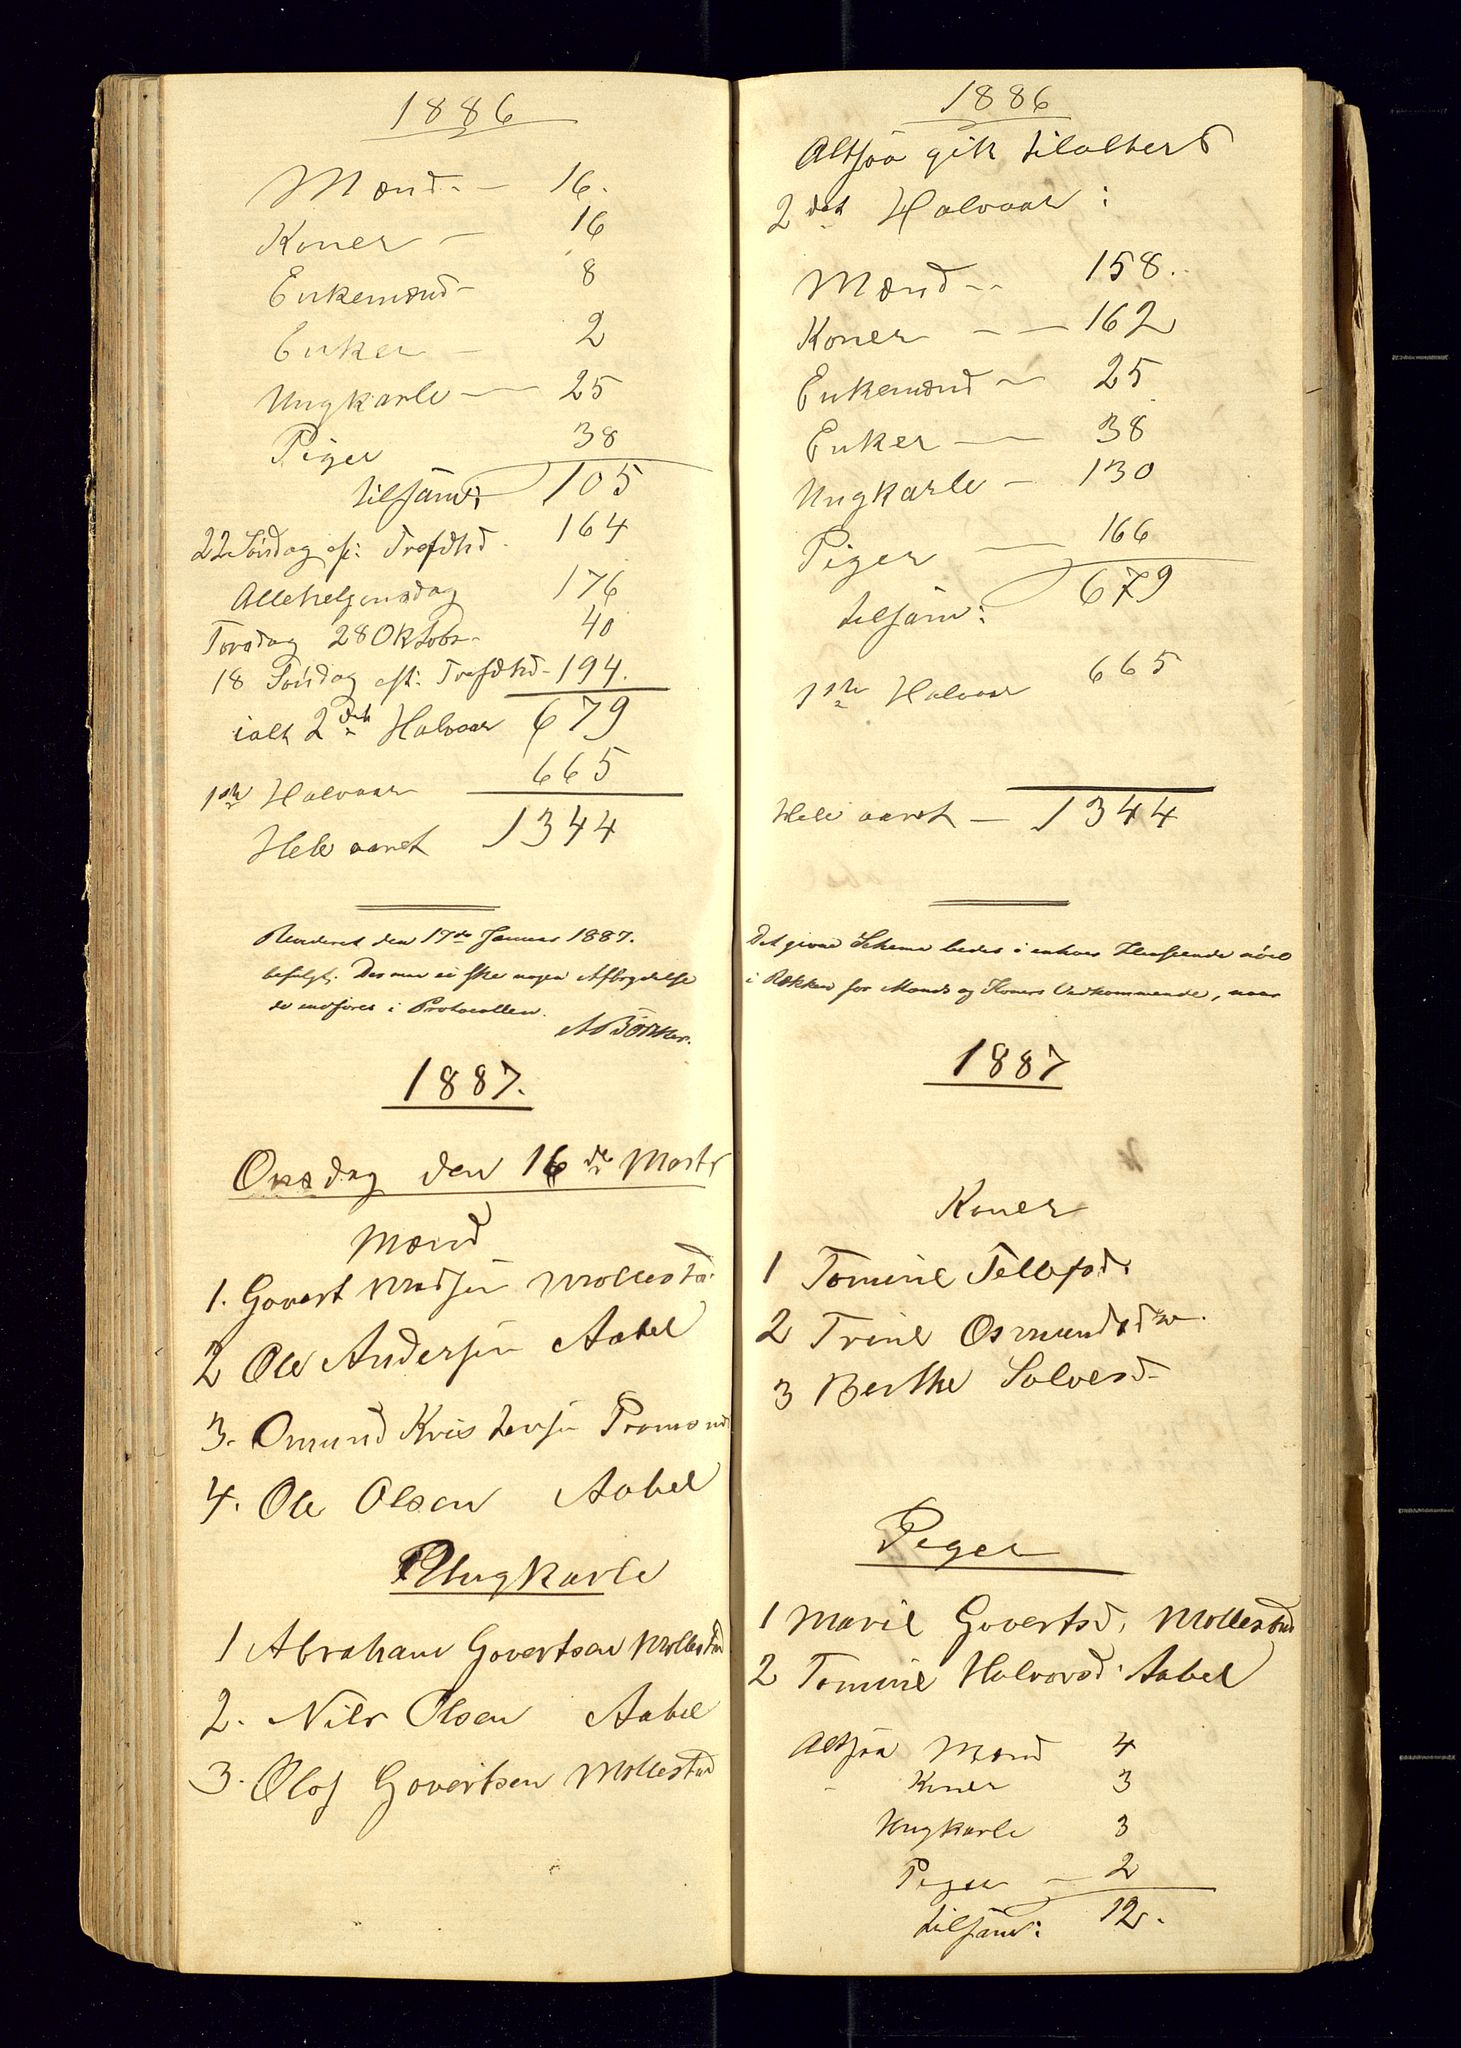 1886
Mænd 16.
Koner 16
Enkemænd 8
Enker 2
Ungkarle 25
Piger 38
tilsam: 105
22 Søndag ef: Trefdhd. 164
Allehelgensdag 176
Torsdag 28 Oktobr. 40
18 Søndag eft: Trefdhd. 194.
ialt 2det Halvaar 679
1ste Halvaar 665
Hele aaret 1344
Revideret den 17de Januar 1887.
ei ske nogen Afbrydelse
i Protocollen.
1887.
Onsdag den 16de Marts
Mænd
1. Govert Madsen Mollestad
2 Ole Andersen Aabel
3. Omund Kristensen
4. Ole Olsen Aabel
Ungkarle
1 Abraham Govertsen Mollestad
2. Nils Olsen Aabel
3. Olof Govertsen Mollestad
1886
Altsaa gik tilalters
2det Halvaar:
Mænd 158.
Koner 162
Enkemænd 25
Enker 38
Ungkarle 130
Piger 166
tilsam: 679
1ste Halvaar 665
Hele aaret 1344
Det givne Schema bedes i enhver Henseende
i Rækken for Mænds og Koners Vedkommende,
1887
Koner
1 Tomine Tellefsd.
2 Trine Osmundsd
3 Berthe Salvesd
Piger
1 Marie Govertsd. Mollestad
2 Tomine Halvorsd. Aabel
Altsaa Mænd 4
Koner 3
Ungkarle 3
Piger 2
tilsam: 12.